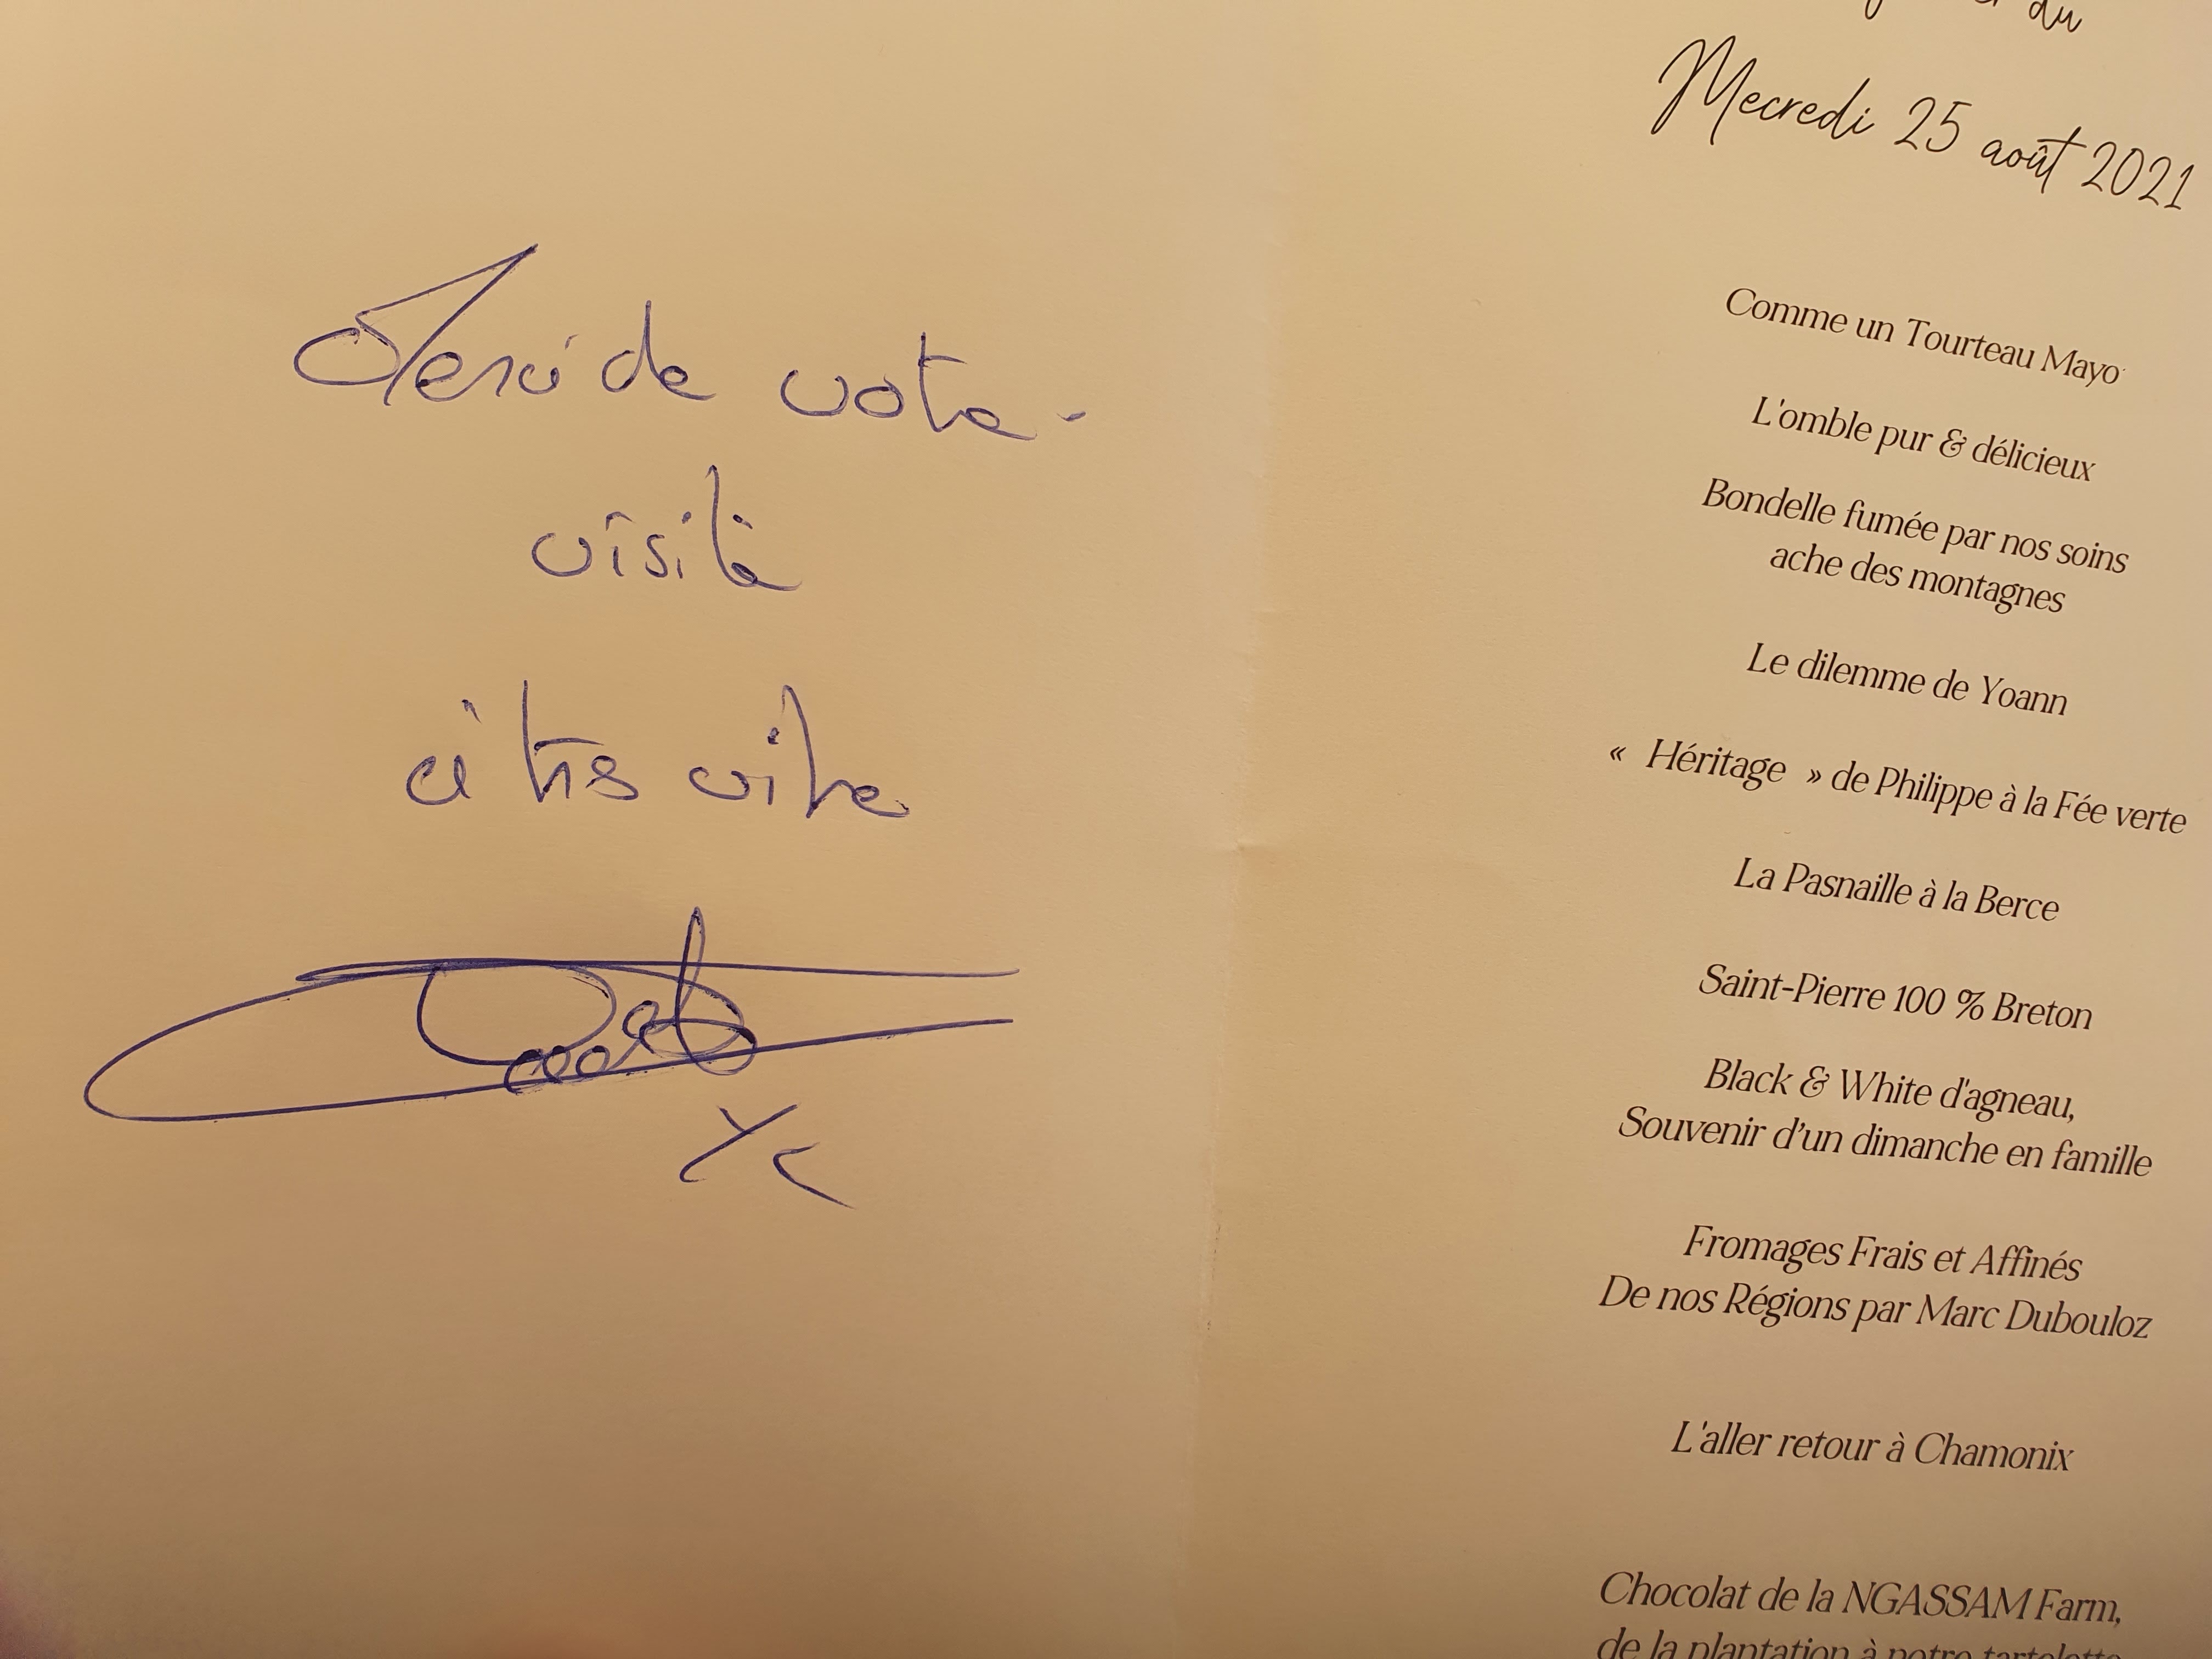 Merci de votre
visite
à très vite
du
Mecredi 25 août 2021
Comme un Tourteau Mayo
L'omble pur & délicieux
Bondelle fumée par nos soins
ache des montagnes
Le dilemme de Yoann
« Héritage » de Philippe à la Fée verte
La Pasnaille à la Berce
Saint-Pierre 100 % Breton
Black & White d'agneau,
Souvenir d’un dimanche en famille
Fromages Frais et Affinés
De nos Régions par Marc Dubouloz
L'aller retour à Chamonix
Chocolat de la NGASSAM Farm,
de la plantation à notre tartelette